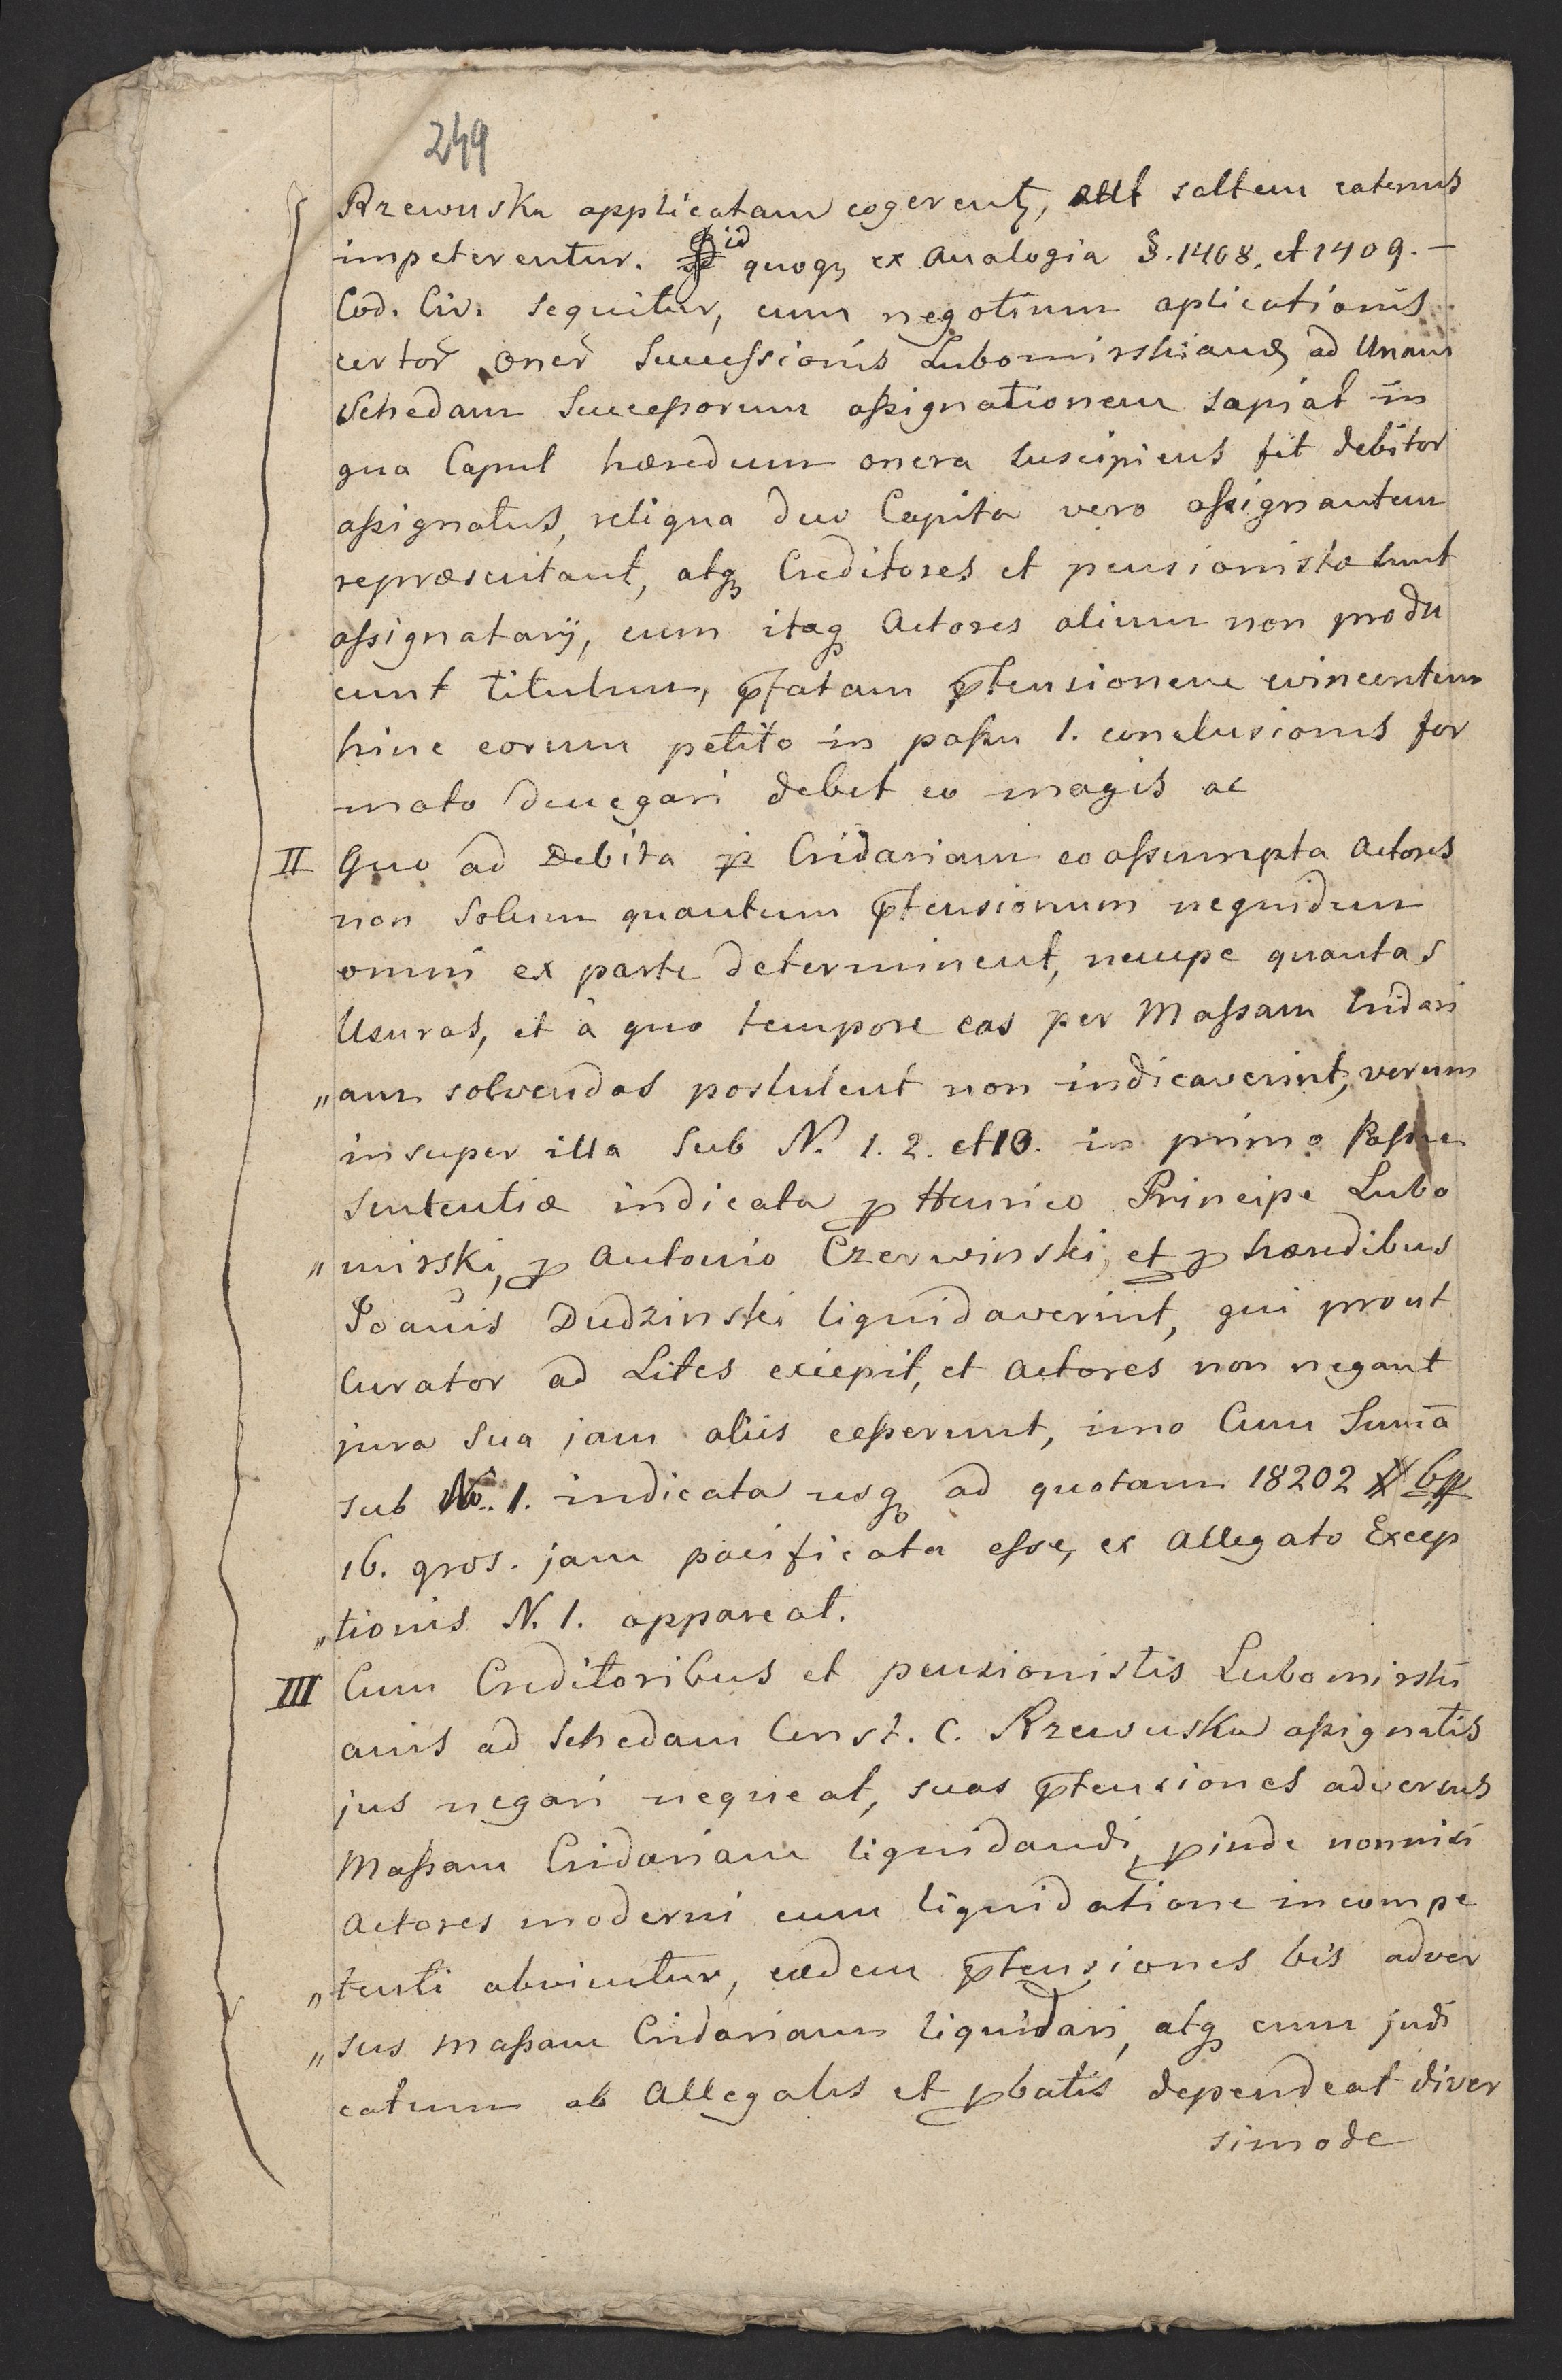 249
Rzewuska applicatam cogerentꝫ, aut saltem eatenus
impeterentur. id quoqꝫ ex Analogia §. 1408. et 1409. –
Cod. Civ. sequitur, cum negotium aplicationis
certor̃ oner̃ Successionis Lubomirskianæ ad Unam
Schedam Successorum assignationem sapiat in
qua Caput hæredum onera suscipiens fit debitor
assignatus, reliqua duo Capita vero assignantem
repræsentant, atqꝫ Creditores et pensionistæ sunt
assignatarÿ, cum itaqꝫ Actores alium non produ
cunt titulum, p̃fatam p̃tensionem evincentem
hinc eorum petito in passu 1. conclusionis for
mato denegari debet eo magis ac
II Quo ad Debita ꝑ Cridariam coassumpta Actores
non solum quantum p̃tensionum nequidem
omni ex parte determinent, nempe quantas
Usuras, et à quo tempore eas per Massam Cridari
„am solvendas postulent non indicaverint, verum
insuper illa sub N. 1. 2. et 10. in primo Passu
sententiæ indicata ꝓ Henrico Principe Lubo
„mirski, ꝓ Antonio Czerwinski, et ꝓ hæredibus
Joañis Dudzinski liquidaverint, qui prout
Curator ad Lites excepit, et Actores non negant
jura sua jam aliis cesserunt, imo Cum Sum̃a
sub No. 1. indicata usqꝫ ad quotam 18202
16. gros. jam pacificata esse, ex Allegato Excep
„tionis N. 1. appareat.
III Cum Creditoribus et pensionistis Lubomirski
anis ad Schedam Const. C. Rzewuska assignatis
jus negari nequeat, suas p̃tensiones adversus
Massam Cridariam liquidandi, ꝓinde nonnisi
Actores moderni cum liquidatione incompe
„tenti abvientur, eædem p̃tensiones bis adver
„sus Massam Cridariam liquidari, atqꝫ cum judi
catum ab Allegatis et ꝓbatis dependeat diver
simode